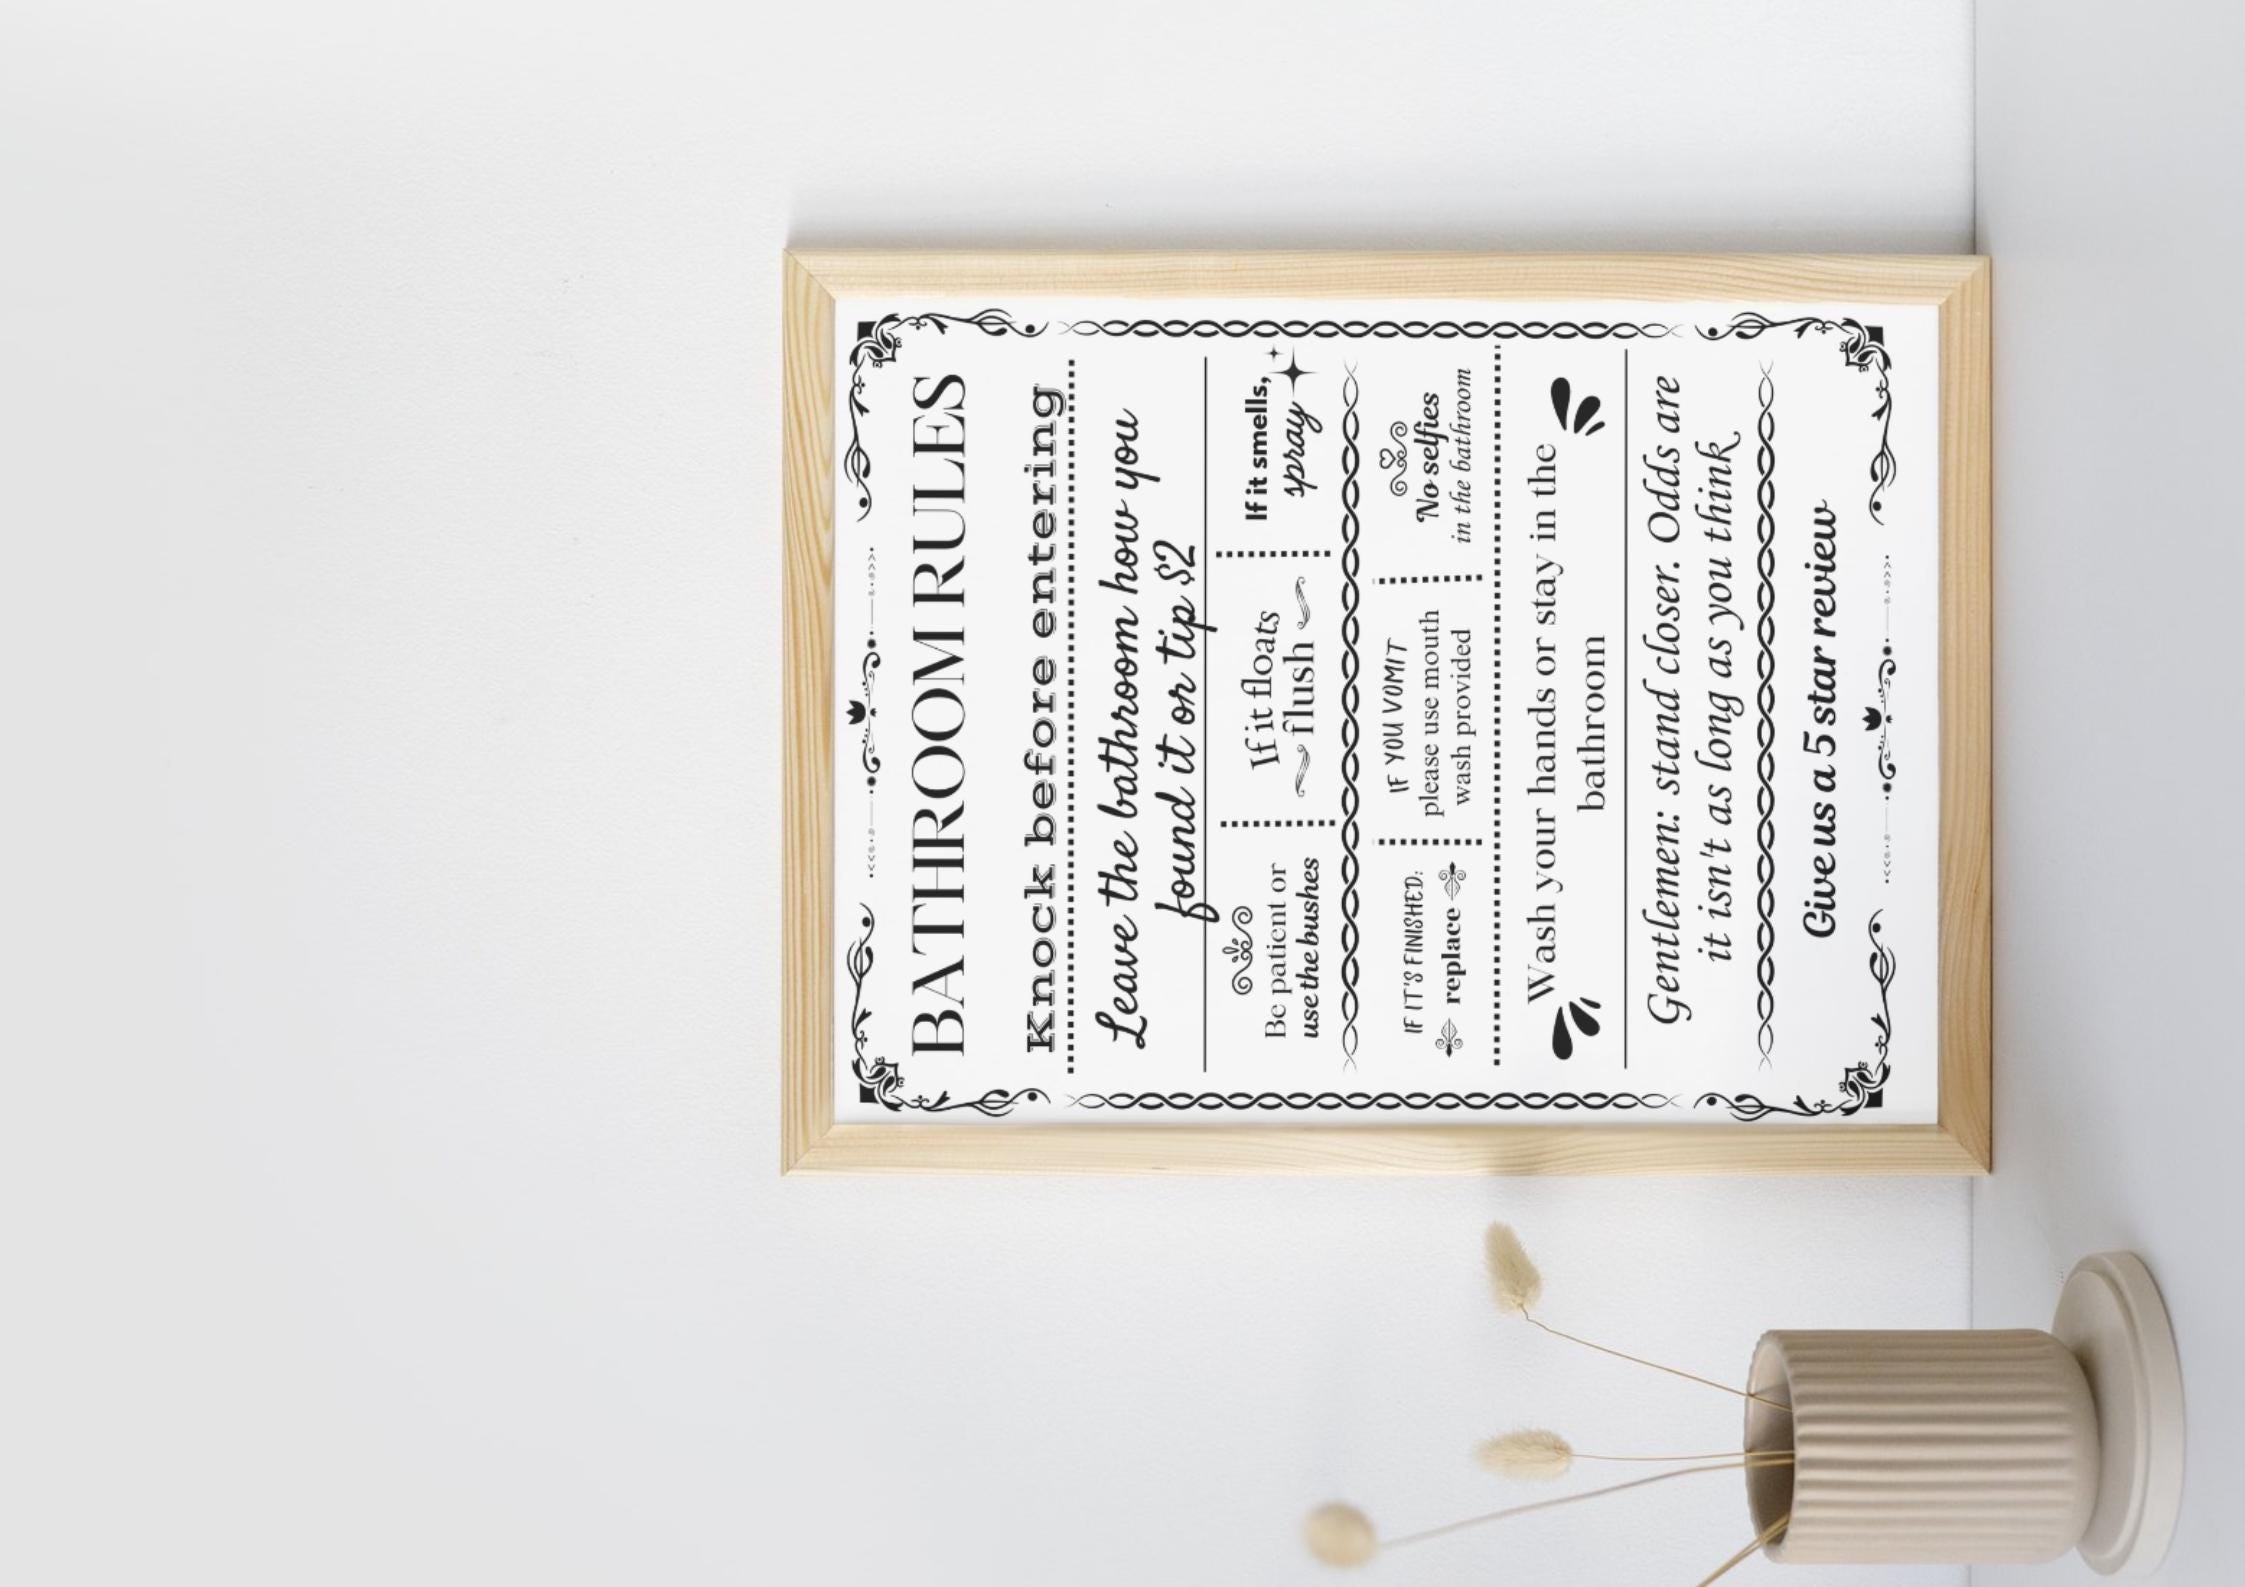 BATHROOM RULES
Knock before entering
Leave the bathroom how you
found it or tip $2
Be patient or
use the bushes
If it floats
flush
If it smells,
spray
IF IT'S FINISHED:
replace
IF YOU VOMIT
please use mouth
wash provided
No selfies
in the bathroom
Wash your hands or stay in the
bathroom
Gentlemen: stand closer. Odds are
it isn't as long as you think
Give us a 5 star review